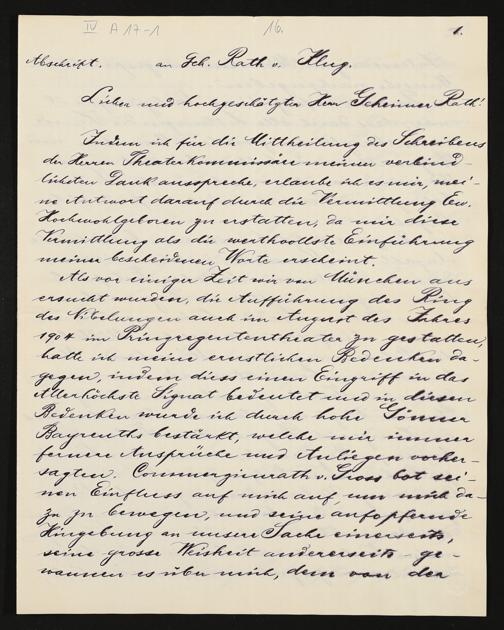 IV A 17-1 16. 1.
Abschrift. an Geh. Rath v. Klug.
Lieber und hochgeschätzter Herr Geheimer Rath!
Indem ich für die Mittheilung des Schreibens
der Herren Theaterkommissäre meinen verbind-
lichsten Dank ausspreche, erlaube ich es mir, mei-
ne Antwort darauf durch die Vermittlung Ew.
Hochwohlgeboren zu erstatten, da mir diese
Vermittlung als die werthvollste Einführung
meiner bescheidenen Worte erscheint.
Als vor einiger Zeit wir von München aus
ersucht wurden, die Aufführung des Ring
des Nibelungen auch im August des Jahres
1904 im Prinzregententheater zu gestatten,
hatte ich meine ernstlichen Bedenken da-
gegen, indem diess einen Eingriff in das
Allerhöchste Signat bedeutet und in diesen
Bedenken wurde ich durch hohe Gönner
Bayreuths bestärkt, welche mir immer
fernere Ansprüche und Anliegen vorher-
sagten. Commerzienrath v. Gross bot sei-
nen Einfluss auf mich auf, um mich da-
zu zu bewegen, und seine aufopfernde
Hingebung an unsere Sache einerseits,
seine grosse Weisheit andererseits ge-
wannen es über mich, dem von der